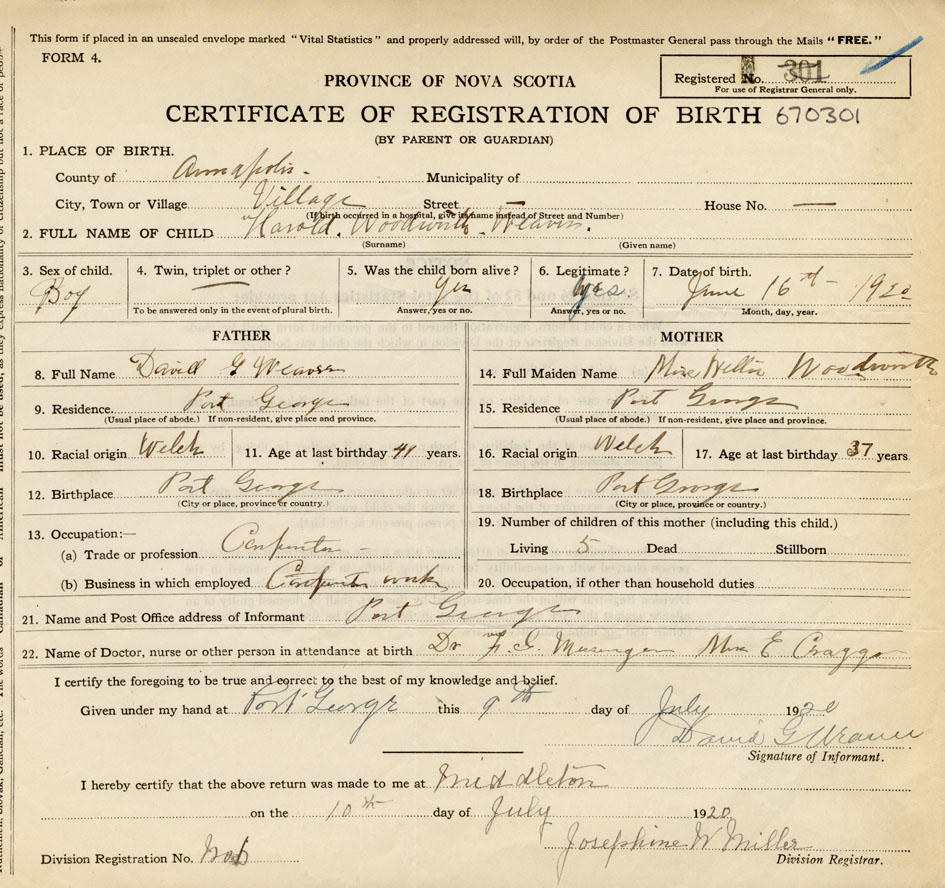 This form if placed in an unsealed envelope marked "Vital Statistics" and properly addressed will, by order of the Postmaster General pass through the Mails "FREE."
FORM 4.
Registered No. 301
For use of Registrar General only.
PROVINCE OF NOVA SCOTIA
CERTIFICATE OF REGISTRATION OF BIRTH 670301
(BY PARENT OR GUARDIAN)
1. PLACE OF BIRTH.
County of Annapolis - Municipality of
City, Town or Village Village Street — House No. —
(If birth occurred in a hospital, give its name instead of Street and Number)
2. FULL NAME OF CHILD Harold. Woodworth. Weaver.
(Surname) (Given name)
3. Sex of child. 4. Twin, triplet or other? 5. Was the child born alive? 6. Legitimate? 7. Date of birth.
Boy — Yes Yes. June 16th - 1920
To be answered only in the event of plural birth. Answer, yes or no. Answer, yes or no. Month, day, year.
FATHER MOTHER
8. Full Name David G Weaver 14. Full Maiden Name Woodworth
9. Residence. Port George 15. Residence Port George
(Usual place of abode.) If non-resident, give place and province. (Usual place of abode.) If non-resident, give place and province.
10. Racial origin Welch 11. Age at last birthday 41 years. 16. Racial origin Welch 17. Age at last birthday 37 years.
12. Birthplace Port George 18. Birthplace Port George
(City or place, province or country.) (City or place, province or country.)
13. Occupation:— 19. Number of children of this mother (including this child.)
(a) Trade or profession Carpenter - Living 5 Dead Stillborn
(b) Business in which employed Carpenter work 20. Occupation, if other than household duties
21. Name and Post Office address of Informant Port George
22. Name of Doctor, nurse or other person in attendance at birth Dr F. G. Messenger Mrs E Craggs
I certify the foregoing to be true and correct to the best of my knowledge and belief.
Given under my hand at Port George this 9th day of July 1920
David G Weaver
Signature of Informant.
I hereby certify that the above return was made to me at Middleton
on the 10th day of July 1920
Josephine W Miller
Division Registration No. Division Registrar.